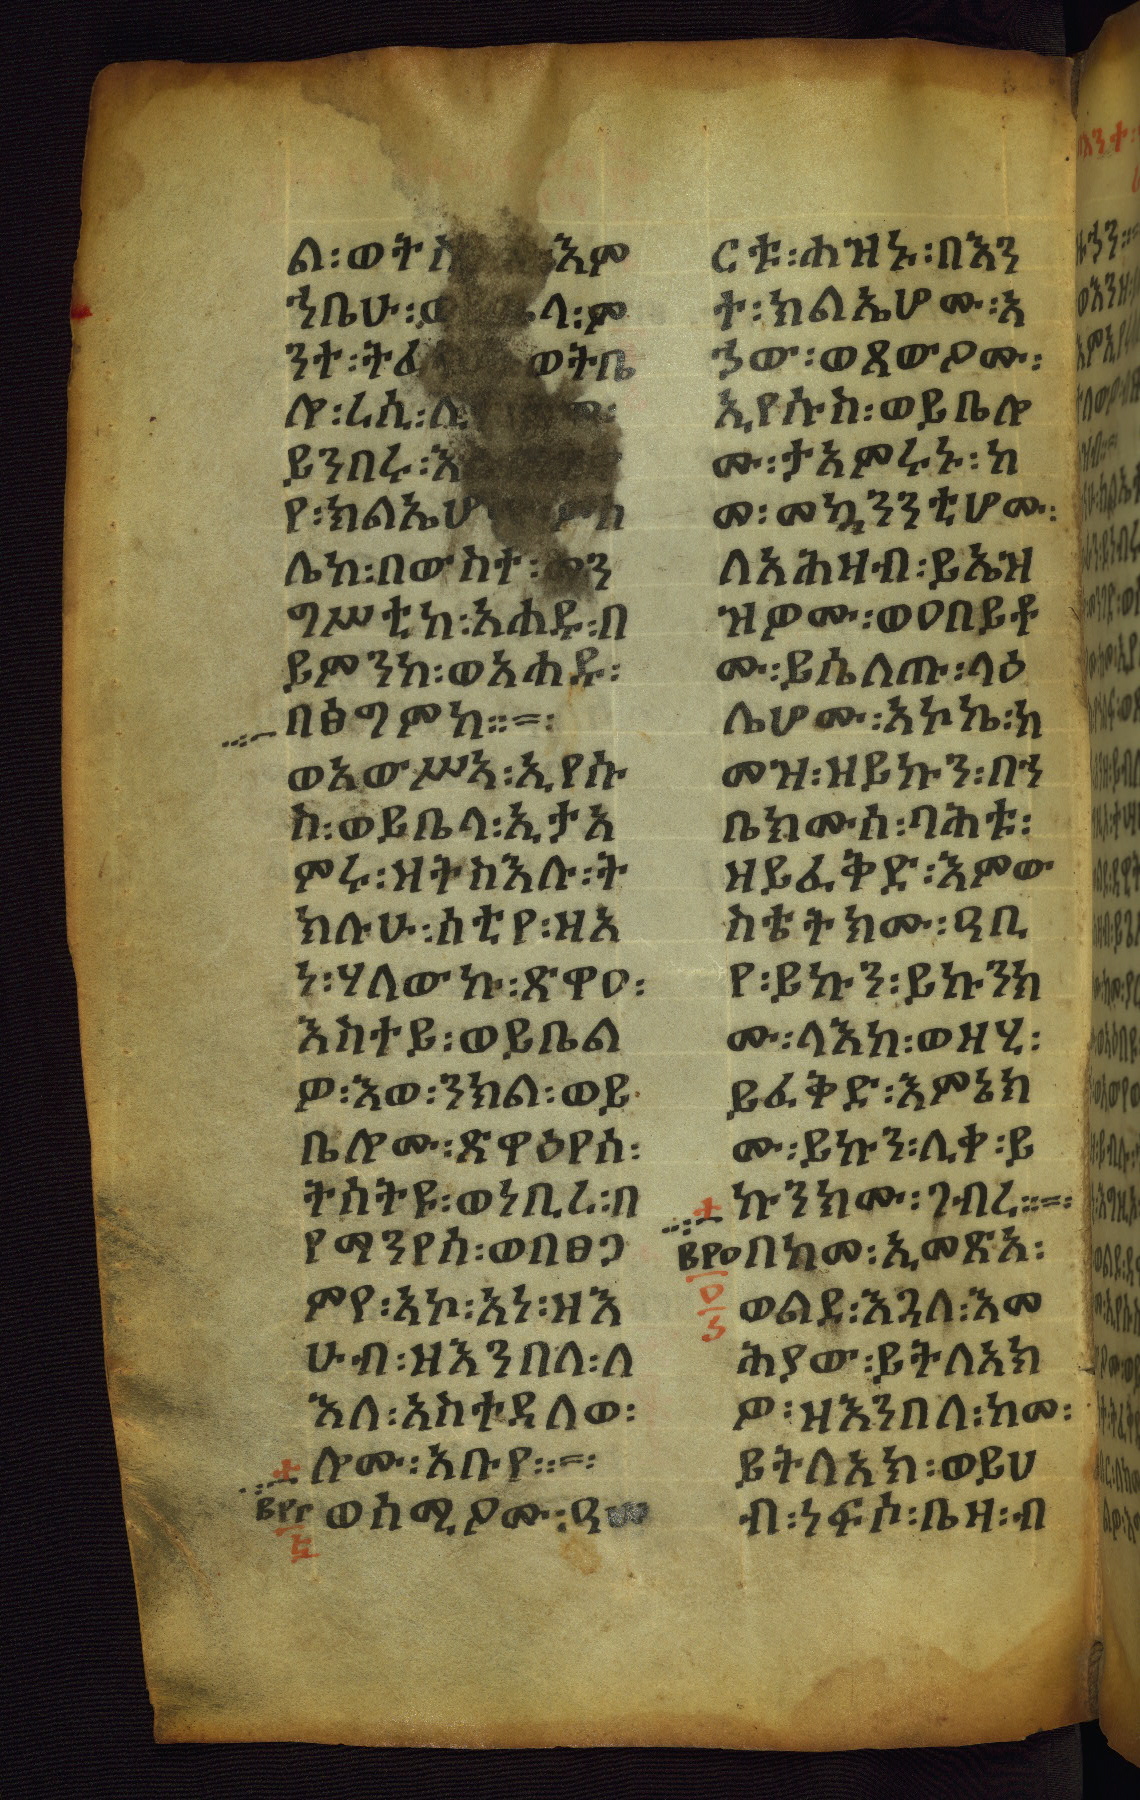 ል፡ወትስ እም
ኀቤሁ፡ወ ላ፡ም
ንተ፡ትፈ ወትቤ
ሎ፡ረሲ፡ሊ
ይንበሩ፡እ
የ፡ክልኤሆ
ሌከ፡በውስተ፡ መን
ግሥቲከ፡አሐዱ፡በ
ይምንከ፡ወአሐዱ፡
በፅግምከ።=፡
ወአውሥአ፡ኢየሱ
ስ፡ወይቤላ፡ኢታአ
ምሩ፡ዘትስእሉ፡ት
ክሉሁ፡ሰቲየ፡ዘአ
ነ፡ሃለውኩ፡ጽዋዐ፡
እስተይ፡ወይቤል
ዎ፡እወ፡ንክል፡ወይ
ቤሎሙ፡ጽዋዕየሰ፡
ትሰትዩ፡ወነቢረ፡በ
የማንየሰ፡ወበፀጋ
ምየ፡አኮ፡አነ፡ዘእ
ሁብ፡ዘእንበለ፡ለ
እለ፡አስተዳለወ፡
ሎሙ፡አቡየ።=፡
ወሰሚዖሙ፡ዓሠ
ርቱ፡ሐዝኑ፡በእን
ተ፡ክልኤሆሙ፡አ
ኀው፡ወጸውዖሙ፡
ኢየሱስ፡ወይቤሎ
ሙ፡ታአምሩኑ፡ከ
መ፡መኳንንቲሆሙ፡
ለአሕዛብ፡ይኤዝ
ዝዎሙ፡ወዐበይቶ
ሙ፡ይሴለጡ፡ላዕ
ሌሆሙ፡አኮኬ፡ከ
መዝ፡ዘይኩን፡በኀ
ቤክሙሰ፡ባሕቱ፡
ዘይፈቅድ፡እምው
ስቴትክሙ፡ዓቢ
የ፡ይኩን፡ይኩንክ
ሙ፡ላእከ፡ወዘሂ፡
ይፈቅድ፡እምኔክ
ሙ፡ይኩን፡ሊቀ፡ይ
ኩንክሙ፡ገብረ።=፡
በከመ፡ኢመጽአ፡
ወልደ፡እጓለ፡እመ
ሕያው፡ይትለአክ
ዎ፡ዘእንበለ፡ከመ፡
ይትለአክ፡ወይሀ
ብ፡ነፍሶ፡ቤዛ፡ብ